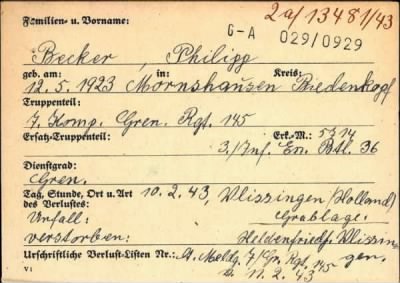 Familien- u. Vorname:
2a/13481/43
G-A 029/0929
Becker, Philipp
geb. am: in: Kreis:
12.5.1923 Mornshausen Biedenkopf
Truppenteil:
7. Komp. Gren. Rgt. 145
Ersatz-Truppenteil: Erk.-M.: 5714
3./Inf. Ers. Btl. 36
Dienstgrad:
Gren.
Tag, Stunde, Ort u. Art 10.2.43, Vlissingen (Holland)
des Verlustes:
Unfall: Grablage:
verstorben: Heldenfriedh. Vlissin-
gen.
Urschriftliche Verlust-Listen Nr.: N. Meldg. 7/Gr. Rgt. 145
v. 11.2.43
V I